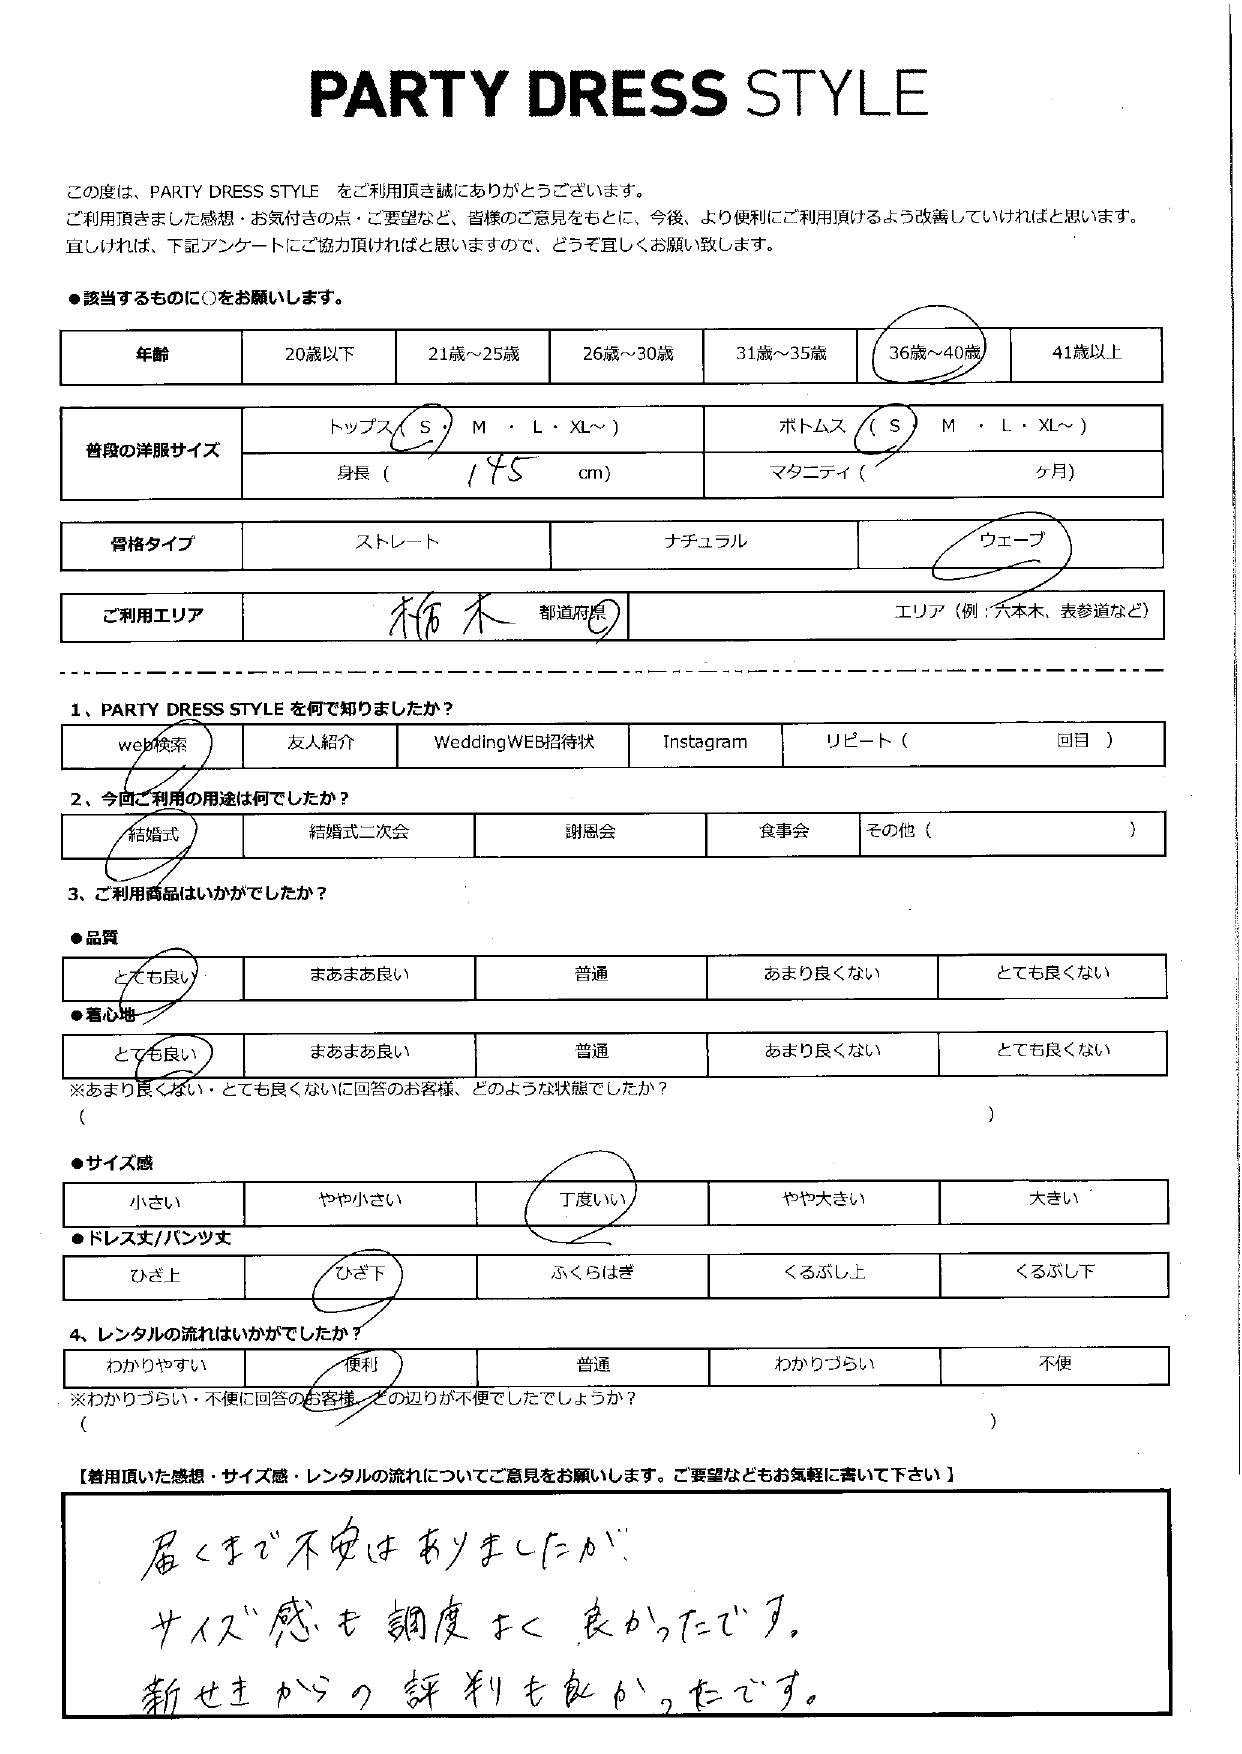 PARTY DRESS STYLE
この度は、PARTY DRESS STYLE　をご利用頂き誠にありがとうございます。
ご利用頂きました感想・お気付きの点・ご要望など、皆様のご意見をもとに、今後、より便利にご利用頂けるよう改善していければと思います。
宜しければ、下記アンケートにご協力頂ければと思いますので、どうぞ宜しくお願い致します。
●該当するものに○をお願いします。
年齢 20歳以下 21歳～25歳 26歳～30歳 31歳～35歳 36歳～40歳 41歳以上
普段の洋服サイズ トップス( S ・ M ・ L ・ XL～ ) ボトムス ( S ・ M ・ L ・ XL～ )
身長 ( 145 cm) マタニティ ( ヶ月)
骨格タイプ ストレート ナチュラル ウェーブ
ご利用エリア 栃木 都道府県 エリア（例：六本木、表参道など）
1、PARTY DRESS STYLE を何で知りましたか？
web検索 友人紹介 WeddingWEB招待状 Instagram リピート（ 回目 ）
2、今回ご利用の用途は何でしたか？
結婚式 結婚式二次会 謝恩会 食事会 その他（ ）
3、ご利用商品はいかがでしたか？
●品質
とても良い まあまあ良い 普通 あまり良くない とても良くない
●着心地
とても良い まあまあ良い 普通 あまり良くない とても良くない
※あまり良くない・とても良くないに回答のお客様、どのような状態でしたか？
( )
●サイズ感
小さい やや小さい 丁度いい やや大きい 大きい
●ドレス丈/パンツ丈
ひざ上 ひざ下 ふくらはぎ くるぶし上 くるぶし下
4、レンタルの流れはいかがでしたか？
わかりやすい 便利 普通 わかりづらい 不便
※わかりづらい・不便に回答のお客様、どの辺りが不便でしたでしょうか？
( )
【着用頂いた感想・サイズ感・レンタルの流れについてご意見をお願いします。ご要望などもお気軽に書いて下さい 】
届くまで不安はありましたが、
サイズ感も調度よく良かったです。
新せきからの評判も良かったです。